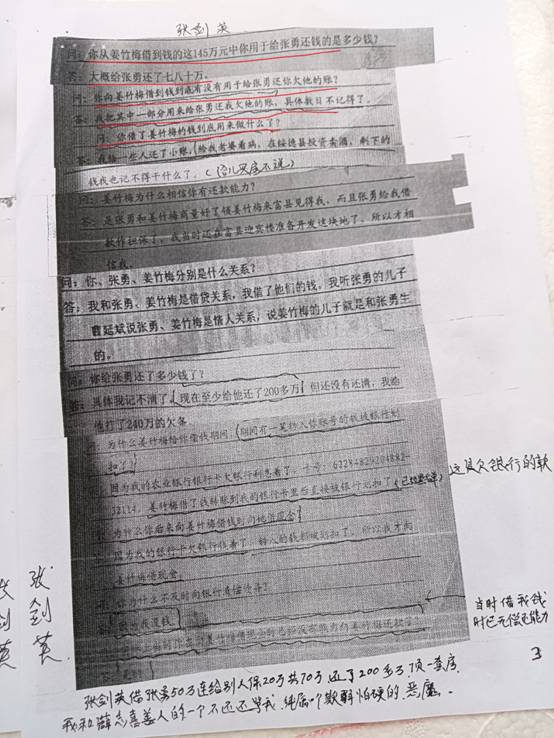 张剑英
问：你从姜竹梅借到钱的这145万元中你用于给张勇还钱的是多少钱？
答：大概给张勇还了七八十万。
问：你向姜竹梅借到钱到底有没有用于给张勇还你欠他的账？
答：我把其中一部分用来给张勇还我欠他的账，具体数目不记得了。
问：你借了姜竹梅的钱到底用来做什么了？
答：我给一些人还了小账，给我老婆看病，在绥德县投资卖酒，剩下的
钱我也记不得干什么了。
问：姜竹梅为什么相信你有还款能力？
答：是张勇和姜竹梅商量好了领姜竹梅来富县见得我，而且张勇给我借
款作担保了，我当时还在富县迎宾楼准备开发这块地了，所以才相
信我。
问：你、张勇、姜竹梅分别是什么关系？
答：我和张勇、姜竹梅是借贷关系，我借了他们的钱，我听张勇的儿子
曹延斌说张勇、姜竹梅是情人关系，说姜竹梅的儿子就是和张勇生
的。
问：你给张勇还了多少钱了？
答：具体我记不清了，现在至少给他还了200多万，但还没有还清，我给
他打了240万的欠条。
问：为什么姜竹梅给你借钱期间，期间有一笔转入你账号的钱被银行划
扣了？
答：因为我的农业银行银行卡欠银行利息着了，卡号：
姜竹梅借了钱转账到我的银行卡里后直接被银行扣了
这是欠银行的款
问：为什么你后来向姜竹梅借钱到的她借现金？
答：因为我的银行卡欠银行钱着了，转入的钱都被划扣了，所以我才向
姜竹梅借现金。
问：你为什么不及时向银行清偿债务？
答：因为我没钱。
当时借我钱
时已无偿还能力
张
剑
英
3
张剑英借张勇50万连给别人保20万共70万还了200多万顶一套房